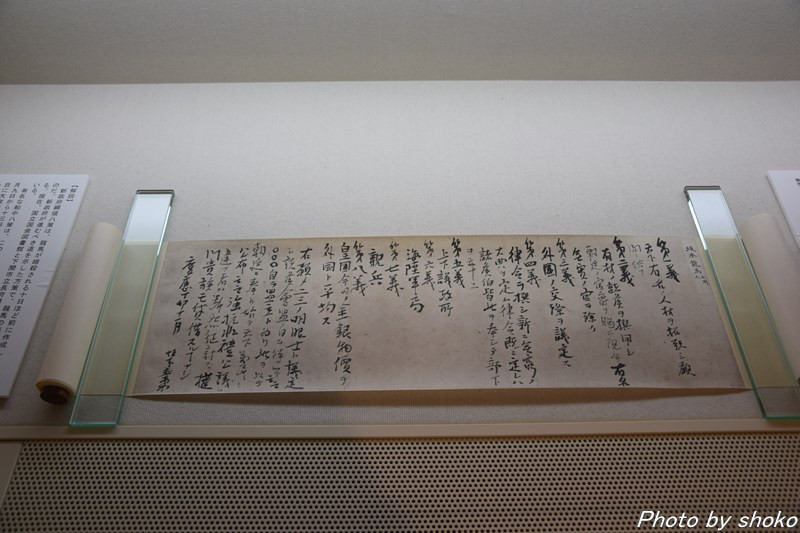 第一義
天下有名ノ人材ヲ招致シ顧
問ニ供フ
第二義
有材ノ諸侯ヲ撰用シ
朝廷ノ官爵ヲ賜ヒ現今有名
無実ノ官ヲ除ク
第三義
外国ノ交際ヲ議定ス
第四義
律令ヲ撰シ新ニ無窮ノ
大典ヲ定ム律令既ニ定レハ
諸侯伯皆此ヲ奉シテ部下
ヲ率ス
第五義
上下議政所
第六義
海陸軍局
第七義
親兵
第八義
皇国今日ノ金銀物価ヲ
外国ト平均ス
右預メ二三ノ明眼士ト議定
シ諸侯会盟ノ日ヲ待ツテ云云
○○○自ラ盟主ト為リ此ヲ以テ
朝廷ニ奉リ始テ天下萬民ニ
公布云云強抗非礼公議ニ
違フ者ハ断然征討ス権
門貴族モ貸借スルコトナシ
慶応丁卯十一月 坂本直柔
【解説】
新政府綱領八策は、龍馬が暗殺される十日ほど前に作成
Photo by shoko